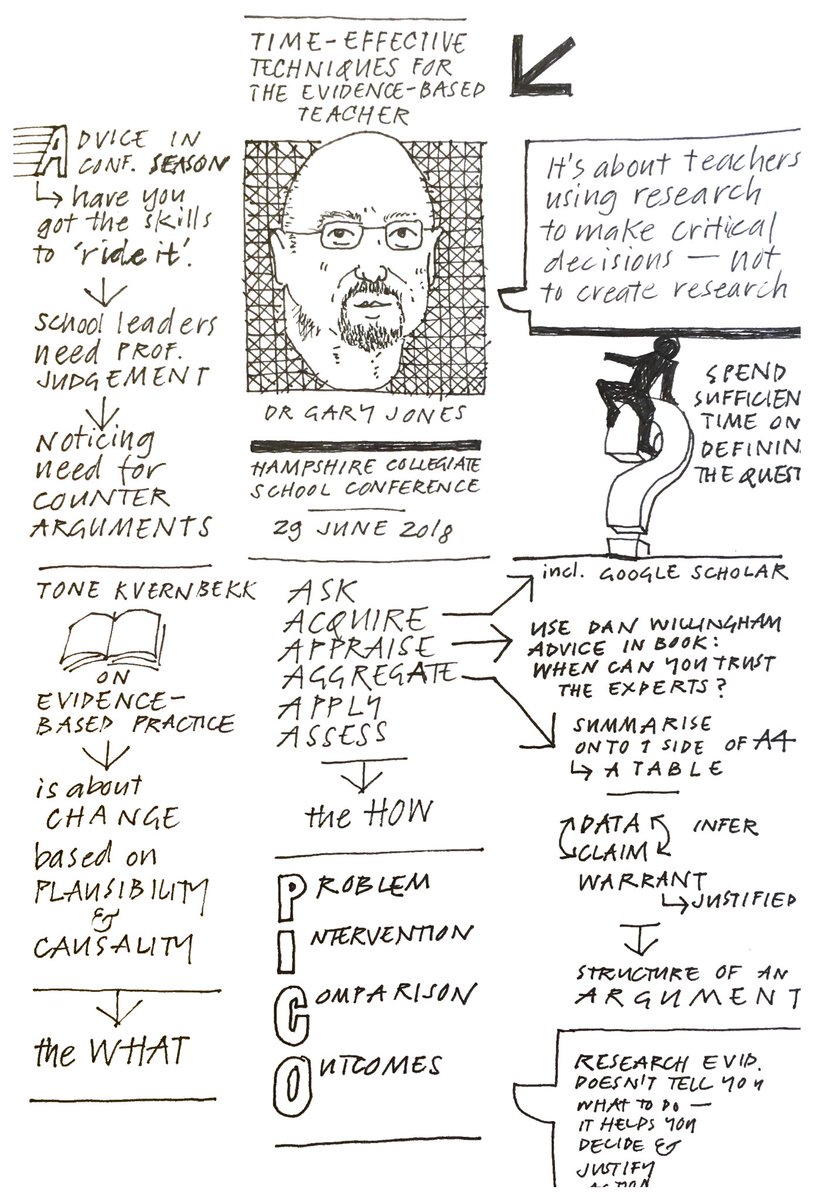 TIME-EFFECTIVE
TECHNIQUES FOR
THE EVIDENCE-BASED
TEACHER
DR GARY JONES
HAMPSHIRE COLLEGIATE
SCHOOL CONFERENCE
29 JUNE 2018
ADVICE IN
CONF. SEASON
have you
got the skills
to 'ride it'.
School leaders
need PROF.
JUDGEMENT
Noticing
need for
COUNTER
ARGUMENTS
TONE KVERNBEKK
ON
EVIDENCE-
BASED PRACTICE
is about
CHANGE
based on
PLAUSIBILITY
&
CAUSALITY
the WHAT
ASK
ACQUIRE
APPRAISE
AGGREGATE
APPLY
ASSESS
the HOW
PROBLEM
INTERVENTION
COMPARISON
OUTCOMES
It's about teachers
using research
to make critical
decisions — not
to create research
SPEND
SUFFICIEN
TIME ON
DEFININ
THE QUEST
incl. GOOGLE SCHOLAR
USE DAN WILLINGHAM
ADVICE IN BOOK:
WHEN CAN YOU TRUST
THE EXPERTS?
SUMMARISE
ONTO 1 SIDE OF A4
A TABLE
DATA INFER
CLAIM
WARRANT
JUSTIFIED
STRUCTURE OF AN
ARGUMENT
RESEARCH EVID.
DOESN'T TELL YOU
WHAT TO DO —
IT HELPS YOU
DECIDE &
JUSTIFY
ACTION